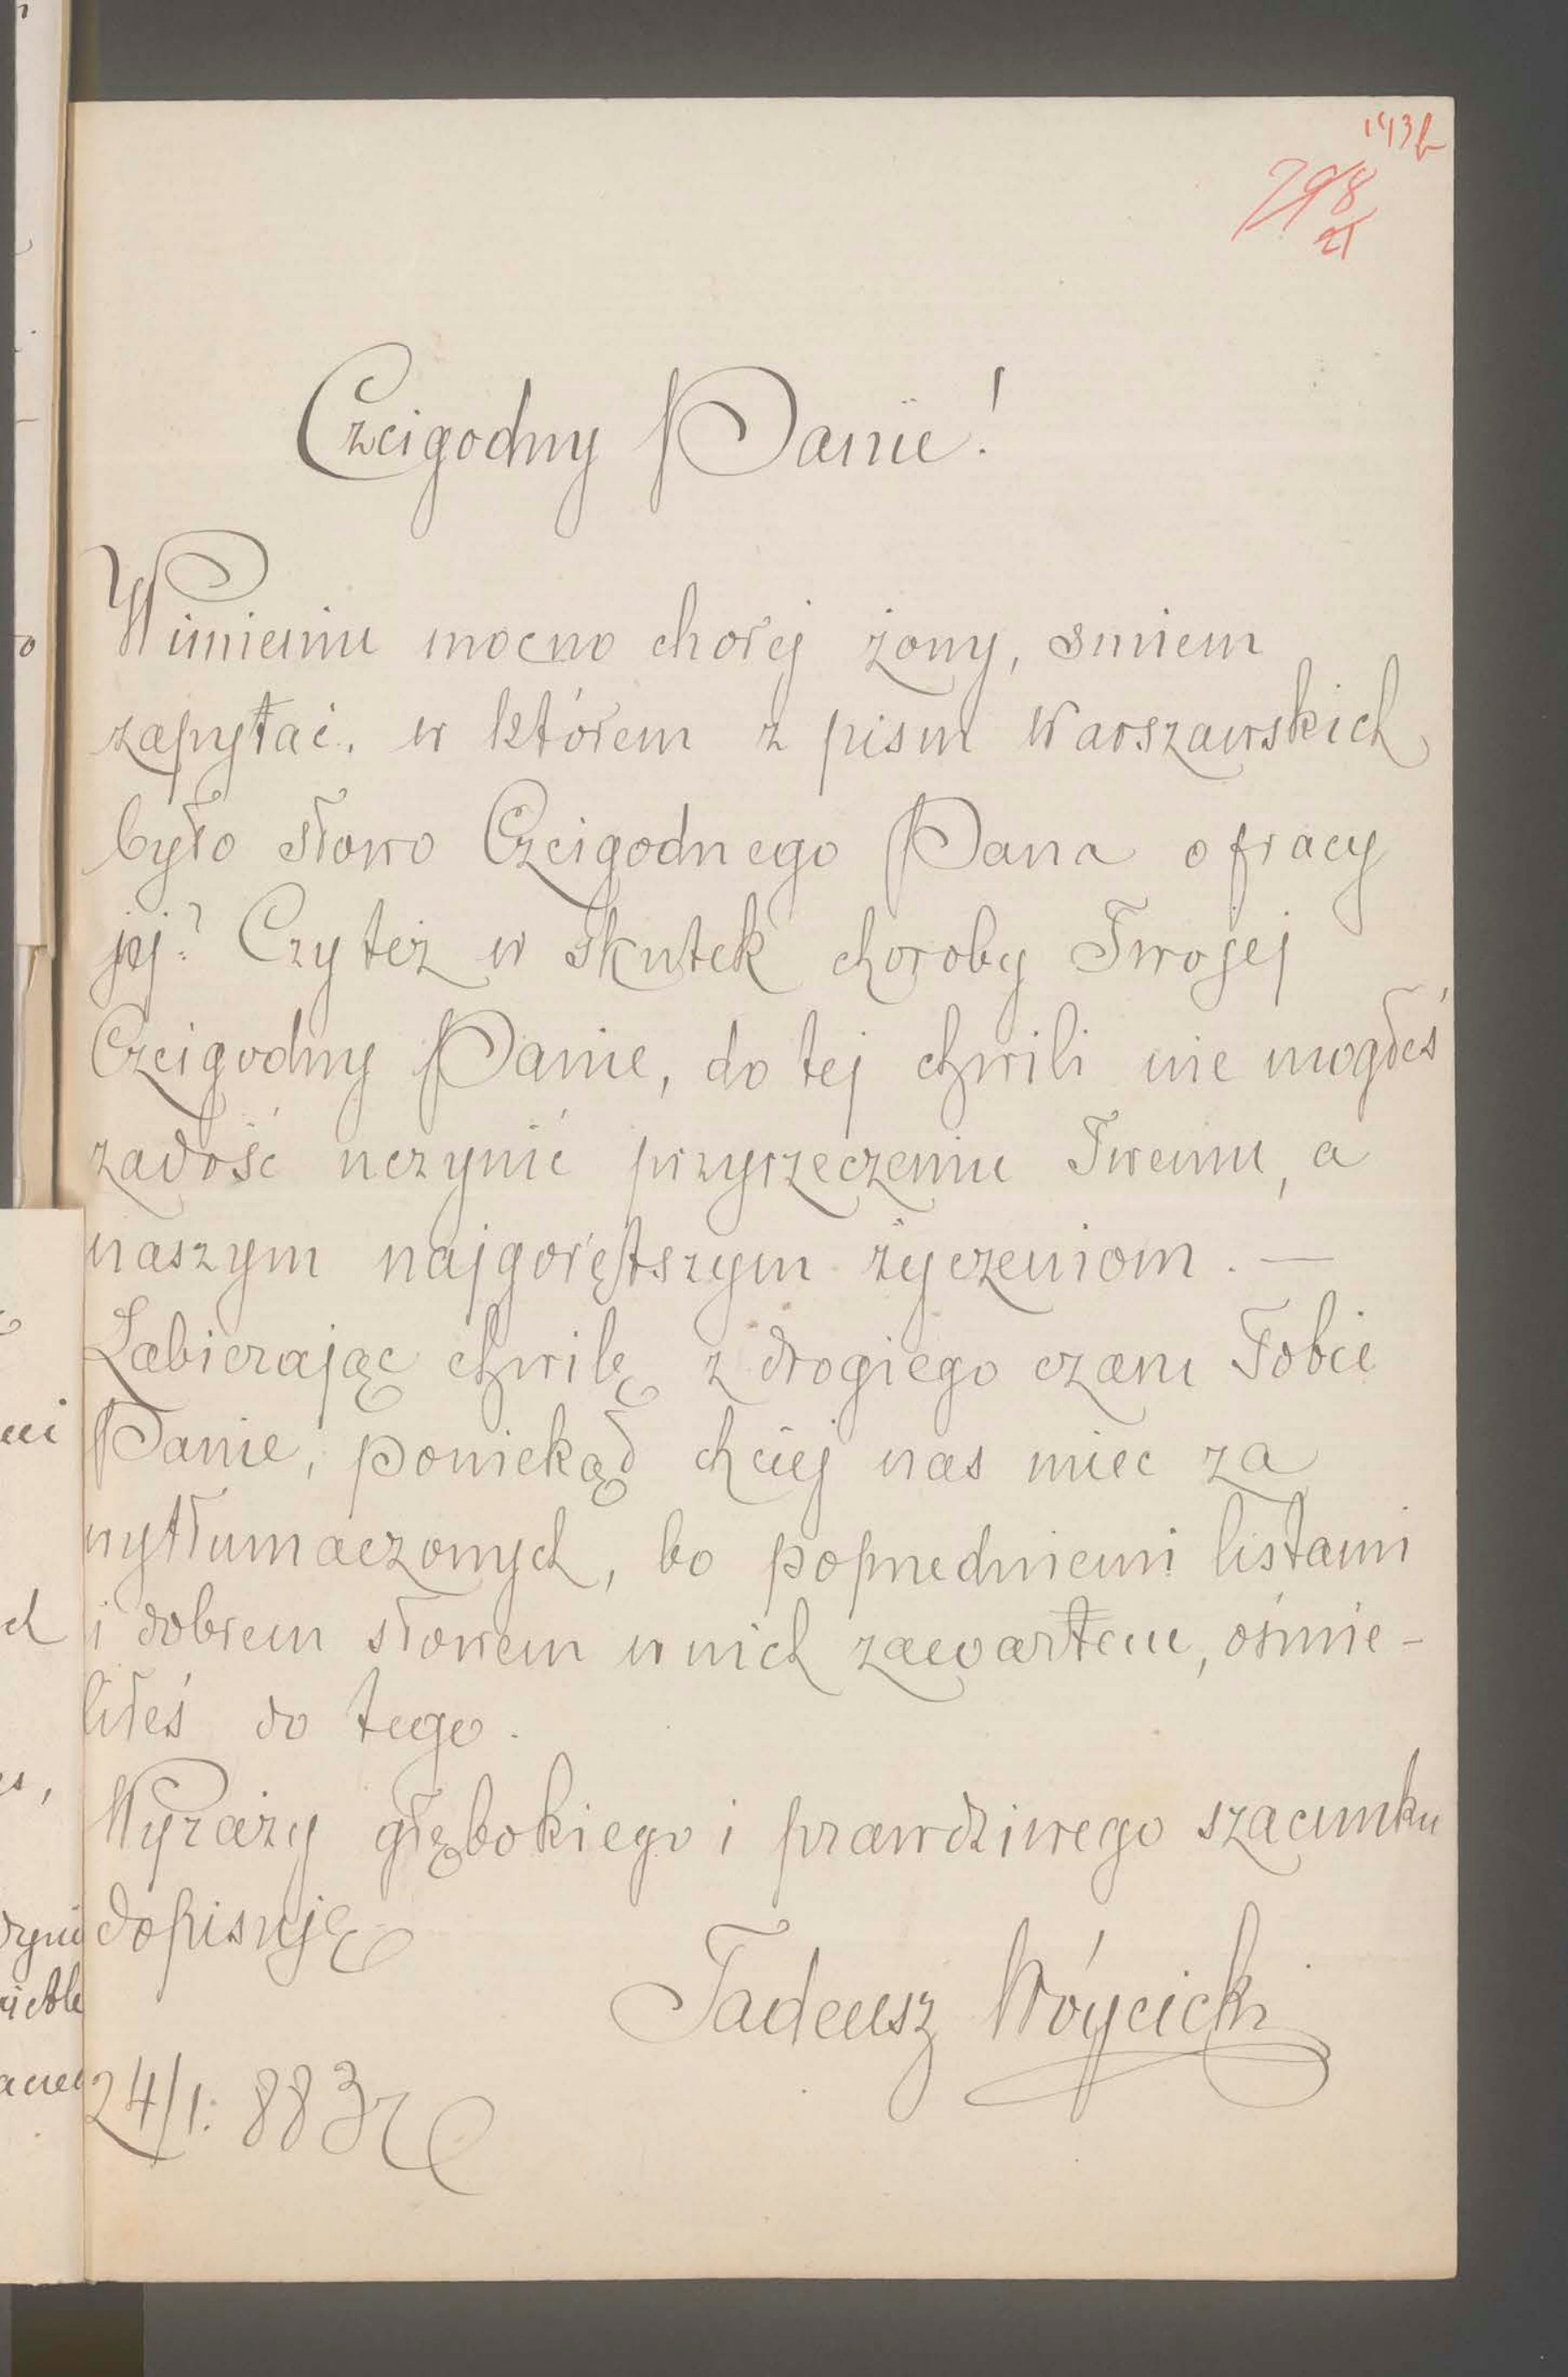 143b
298
21
Czcigodny Panie!
W imieniu mocno chorej żony, smiem
zapytać, w którem z pism Warszawskich
było słowo Czcigodnego Pana o pracy
jej? Czy też w skutek choroby Twojej
Czcigodny Panie, do tej chwili nie mogłeś
zadość uczynić przyrzeczeniu Twemu, a
naszym najgorętszym życzeniom. —
Zabierając chwilę z drogiego czasu Tobie
Panie, poniekąd chciej nas miec za
wytłumaczonych, bo poprzedniemi listami
i dobrem słowem w nich zawartem, ośmie-
liłeś do tego.
Wyrazy głębokiego i prawdziwego szacunku
dopisuję
Tadeusz Wóycicki
24/1. 883 r